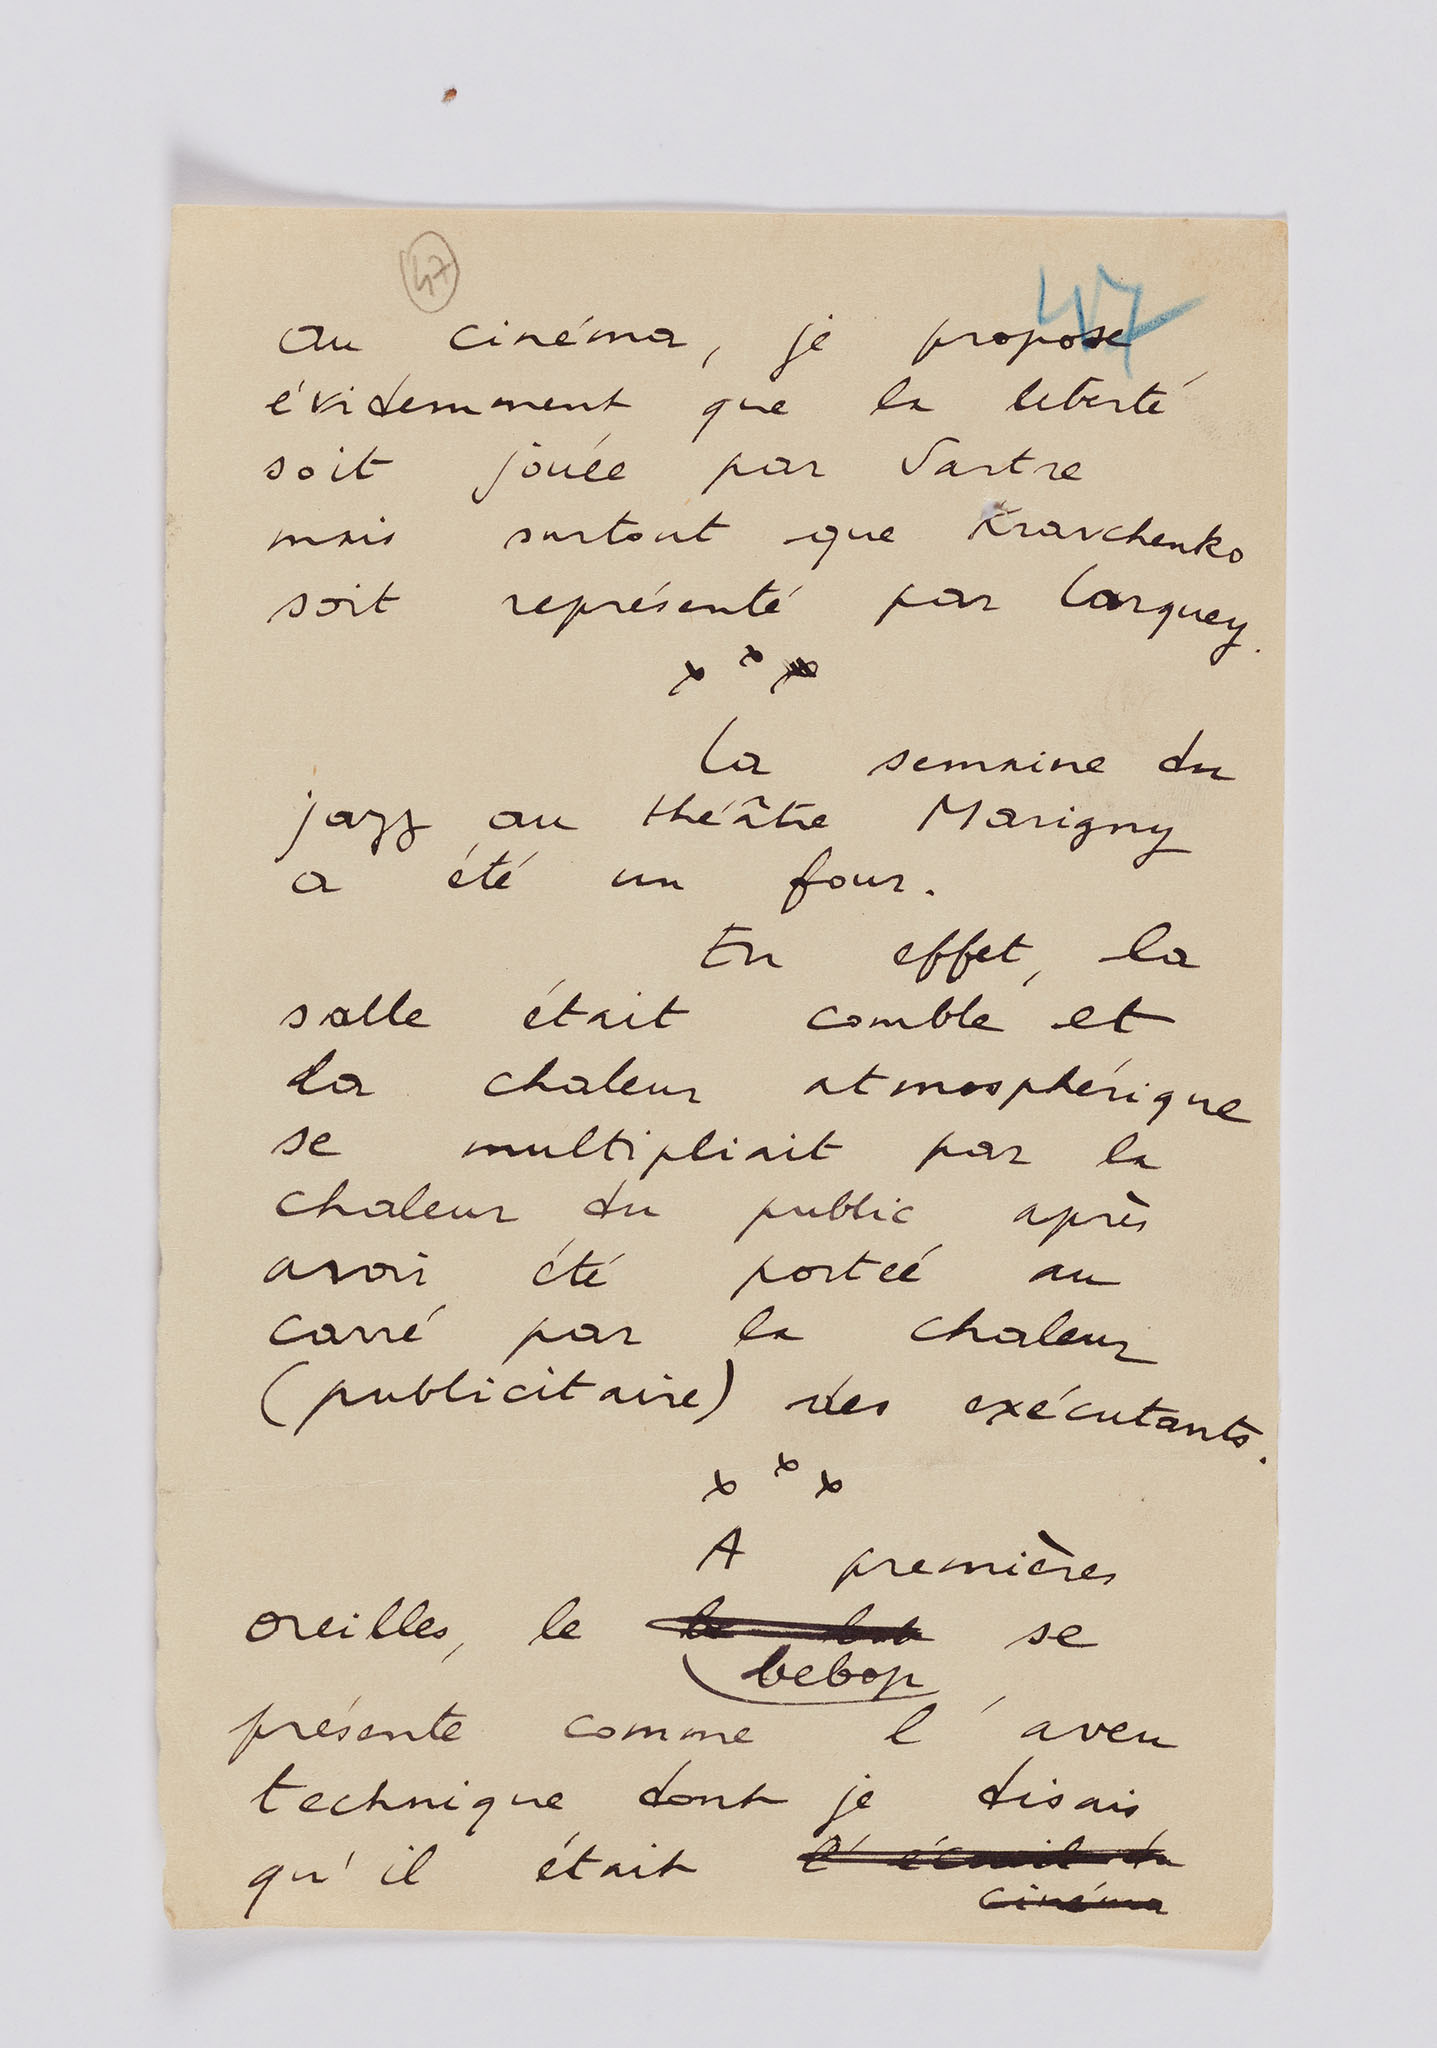 47
47
au cinéma, je propose
évidemment que la liberté
soit jouée par Sartre
mais surtout que Kravchenko
soit représenté par Larquey.
x x x
La semaine du
jazz au théâtre Marigny
a été un four.
En effet, la
salle était comble et
la chaleur atmosphérique
se multipliait par la
chaleur du public après
avoir été portée au
carré par la chaleur
(publicitaire) des exécutants.
x x x
A premières
oreilles, le le bob se
bebop
présente comme l'aveu
technique dont je disais
qu'il était l'écueil du
cinéma